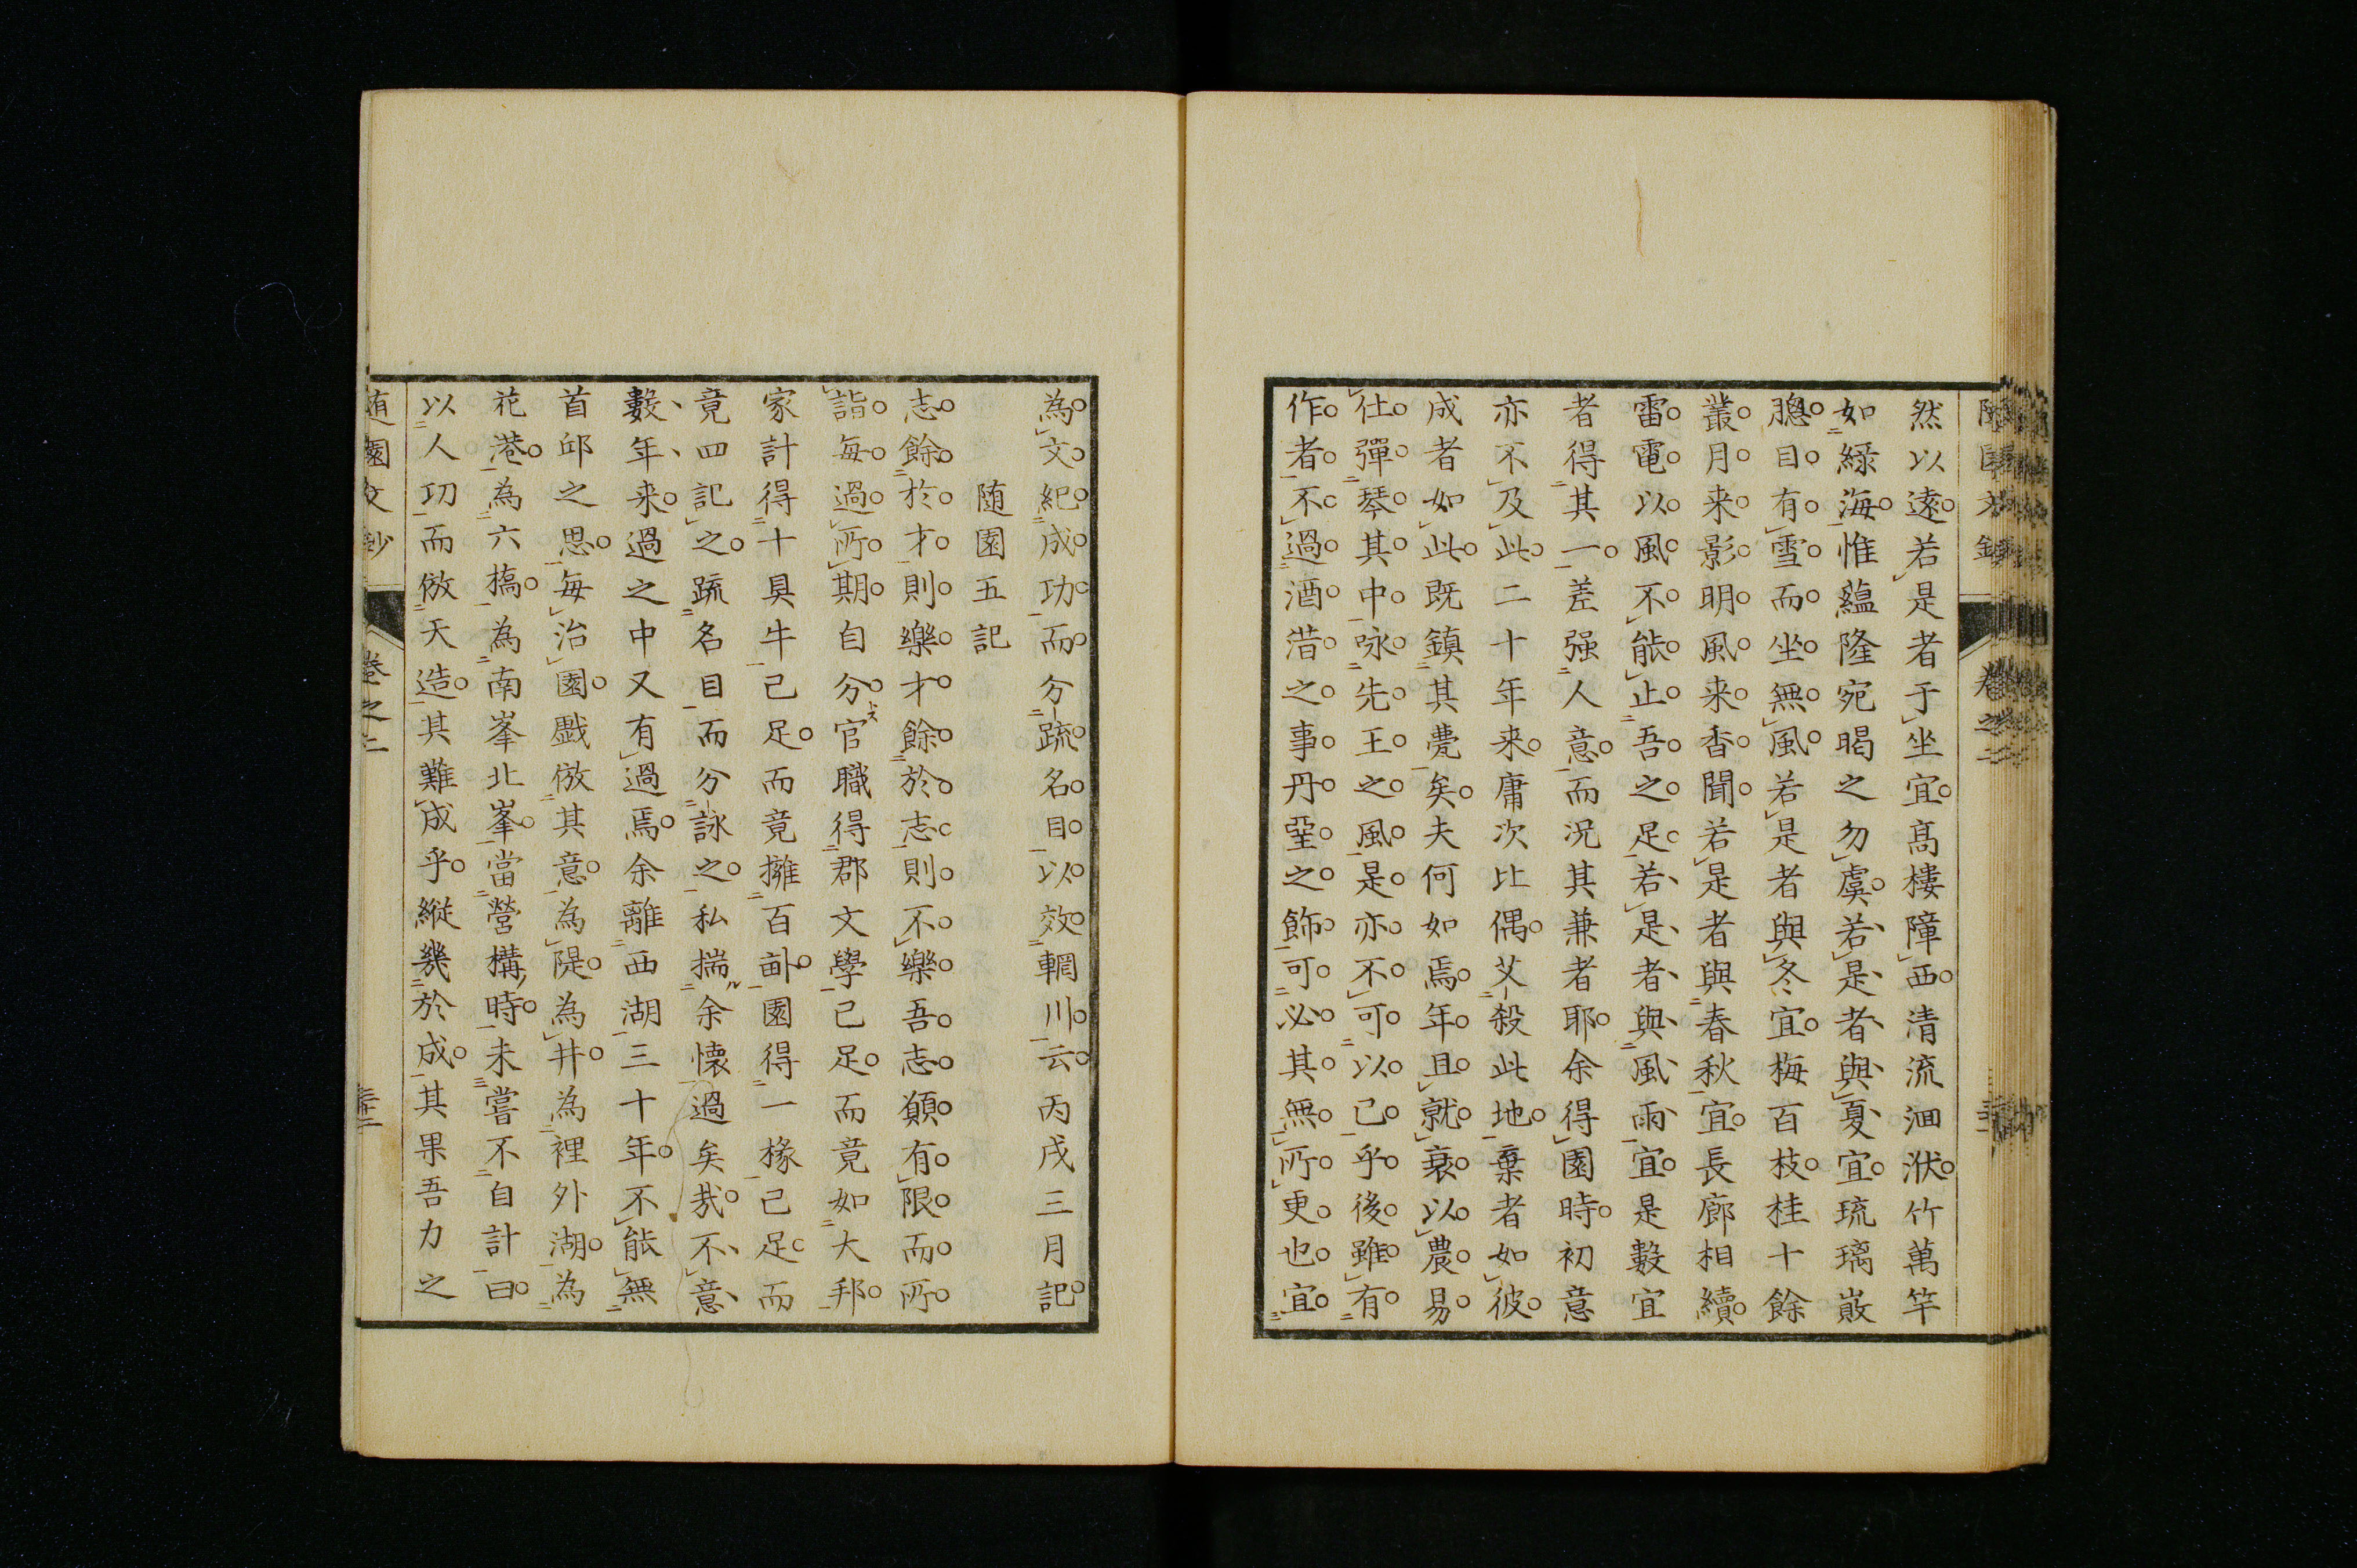 然以遠若是者于坐宜髙樓障西清流洄洑竹萬竿
如綠海惟蘊隆宛暍之勿虞若是者與夏宜琉璃嵌
牕目有雪而坐無風若是者與冬宜梅百枝桂十餘
叢月来影明風来香聞若是者與春秋宜長廊相續
雷電以風不能止吾之足若是者與風雨宜是數宜
者得其一差强人意而况其兼者耶余得園時初意
亦不及此二十年来庸次比偶艾殺此地棄者如彼
成者如此既鎮其甍矣夫何如焉年且就衰以農易
仕彈琴其中咏先王之風是亦不可以已乎後雖有
作者不過洒㳻之事丹堊之飾可必其無所更也宜
為文紀成功而分疏名目以效輞川云丙戌三月記
随園五記
志餘於才則樂才餘於志則不樂吾志願有限而所
詣每過所期自分官職得郡文學已足而竟如大邦
家計得十具牛已足而竟擁百畝園得一椽已足而
竟四記之疏名目而分詠之私揣余懐過矣㢤不意
數年来過之中又有過焉余離西湖三十年不能無
首邱之思每治園戲倣其意為隄為井為裡外湖為
花港為六橋為南峯北峯當營構時未嘗不自計曰
以人功而倣天造其難成乎縱幾於成其果吾力之
随園文鈔
卷之二